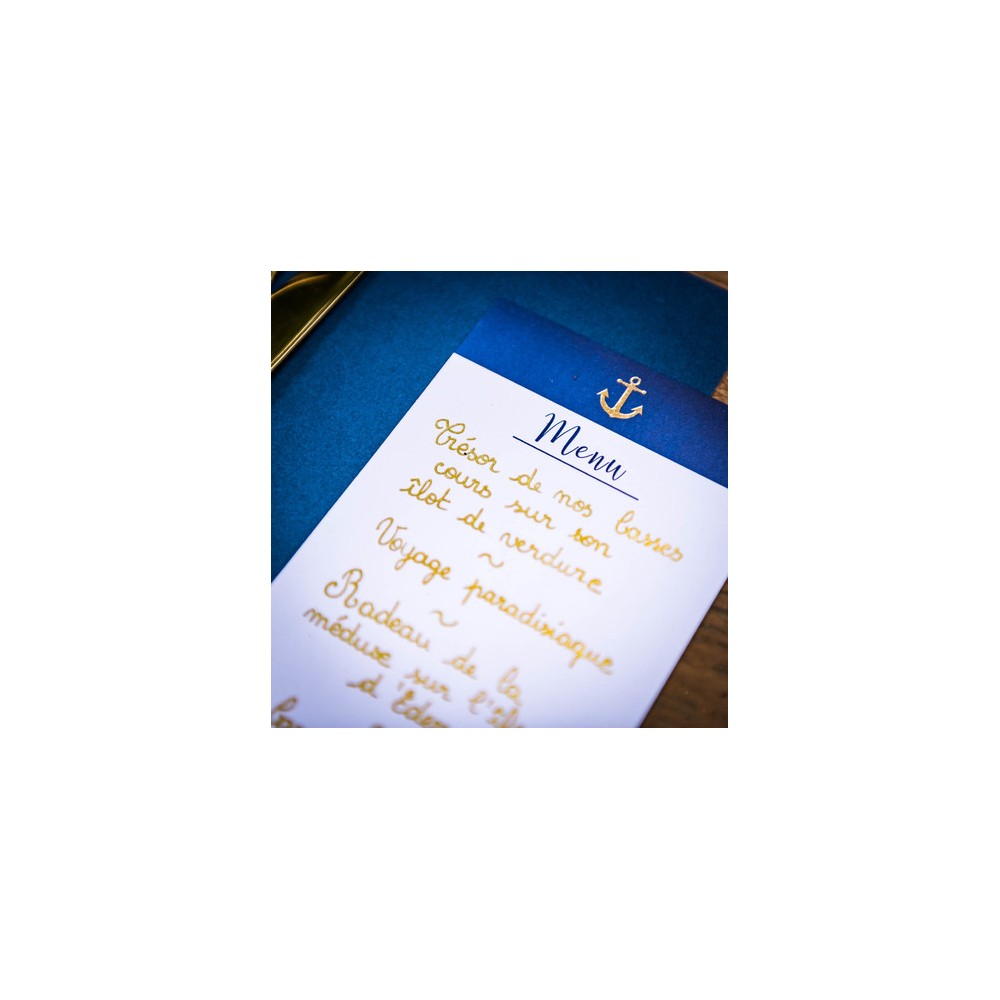 Menu
Trésor de nos basses
cours sur son
îlot de verdure
~
Voyage paradisiaque
~
Radeau de la
méduse sur l'
d'Eden